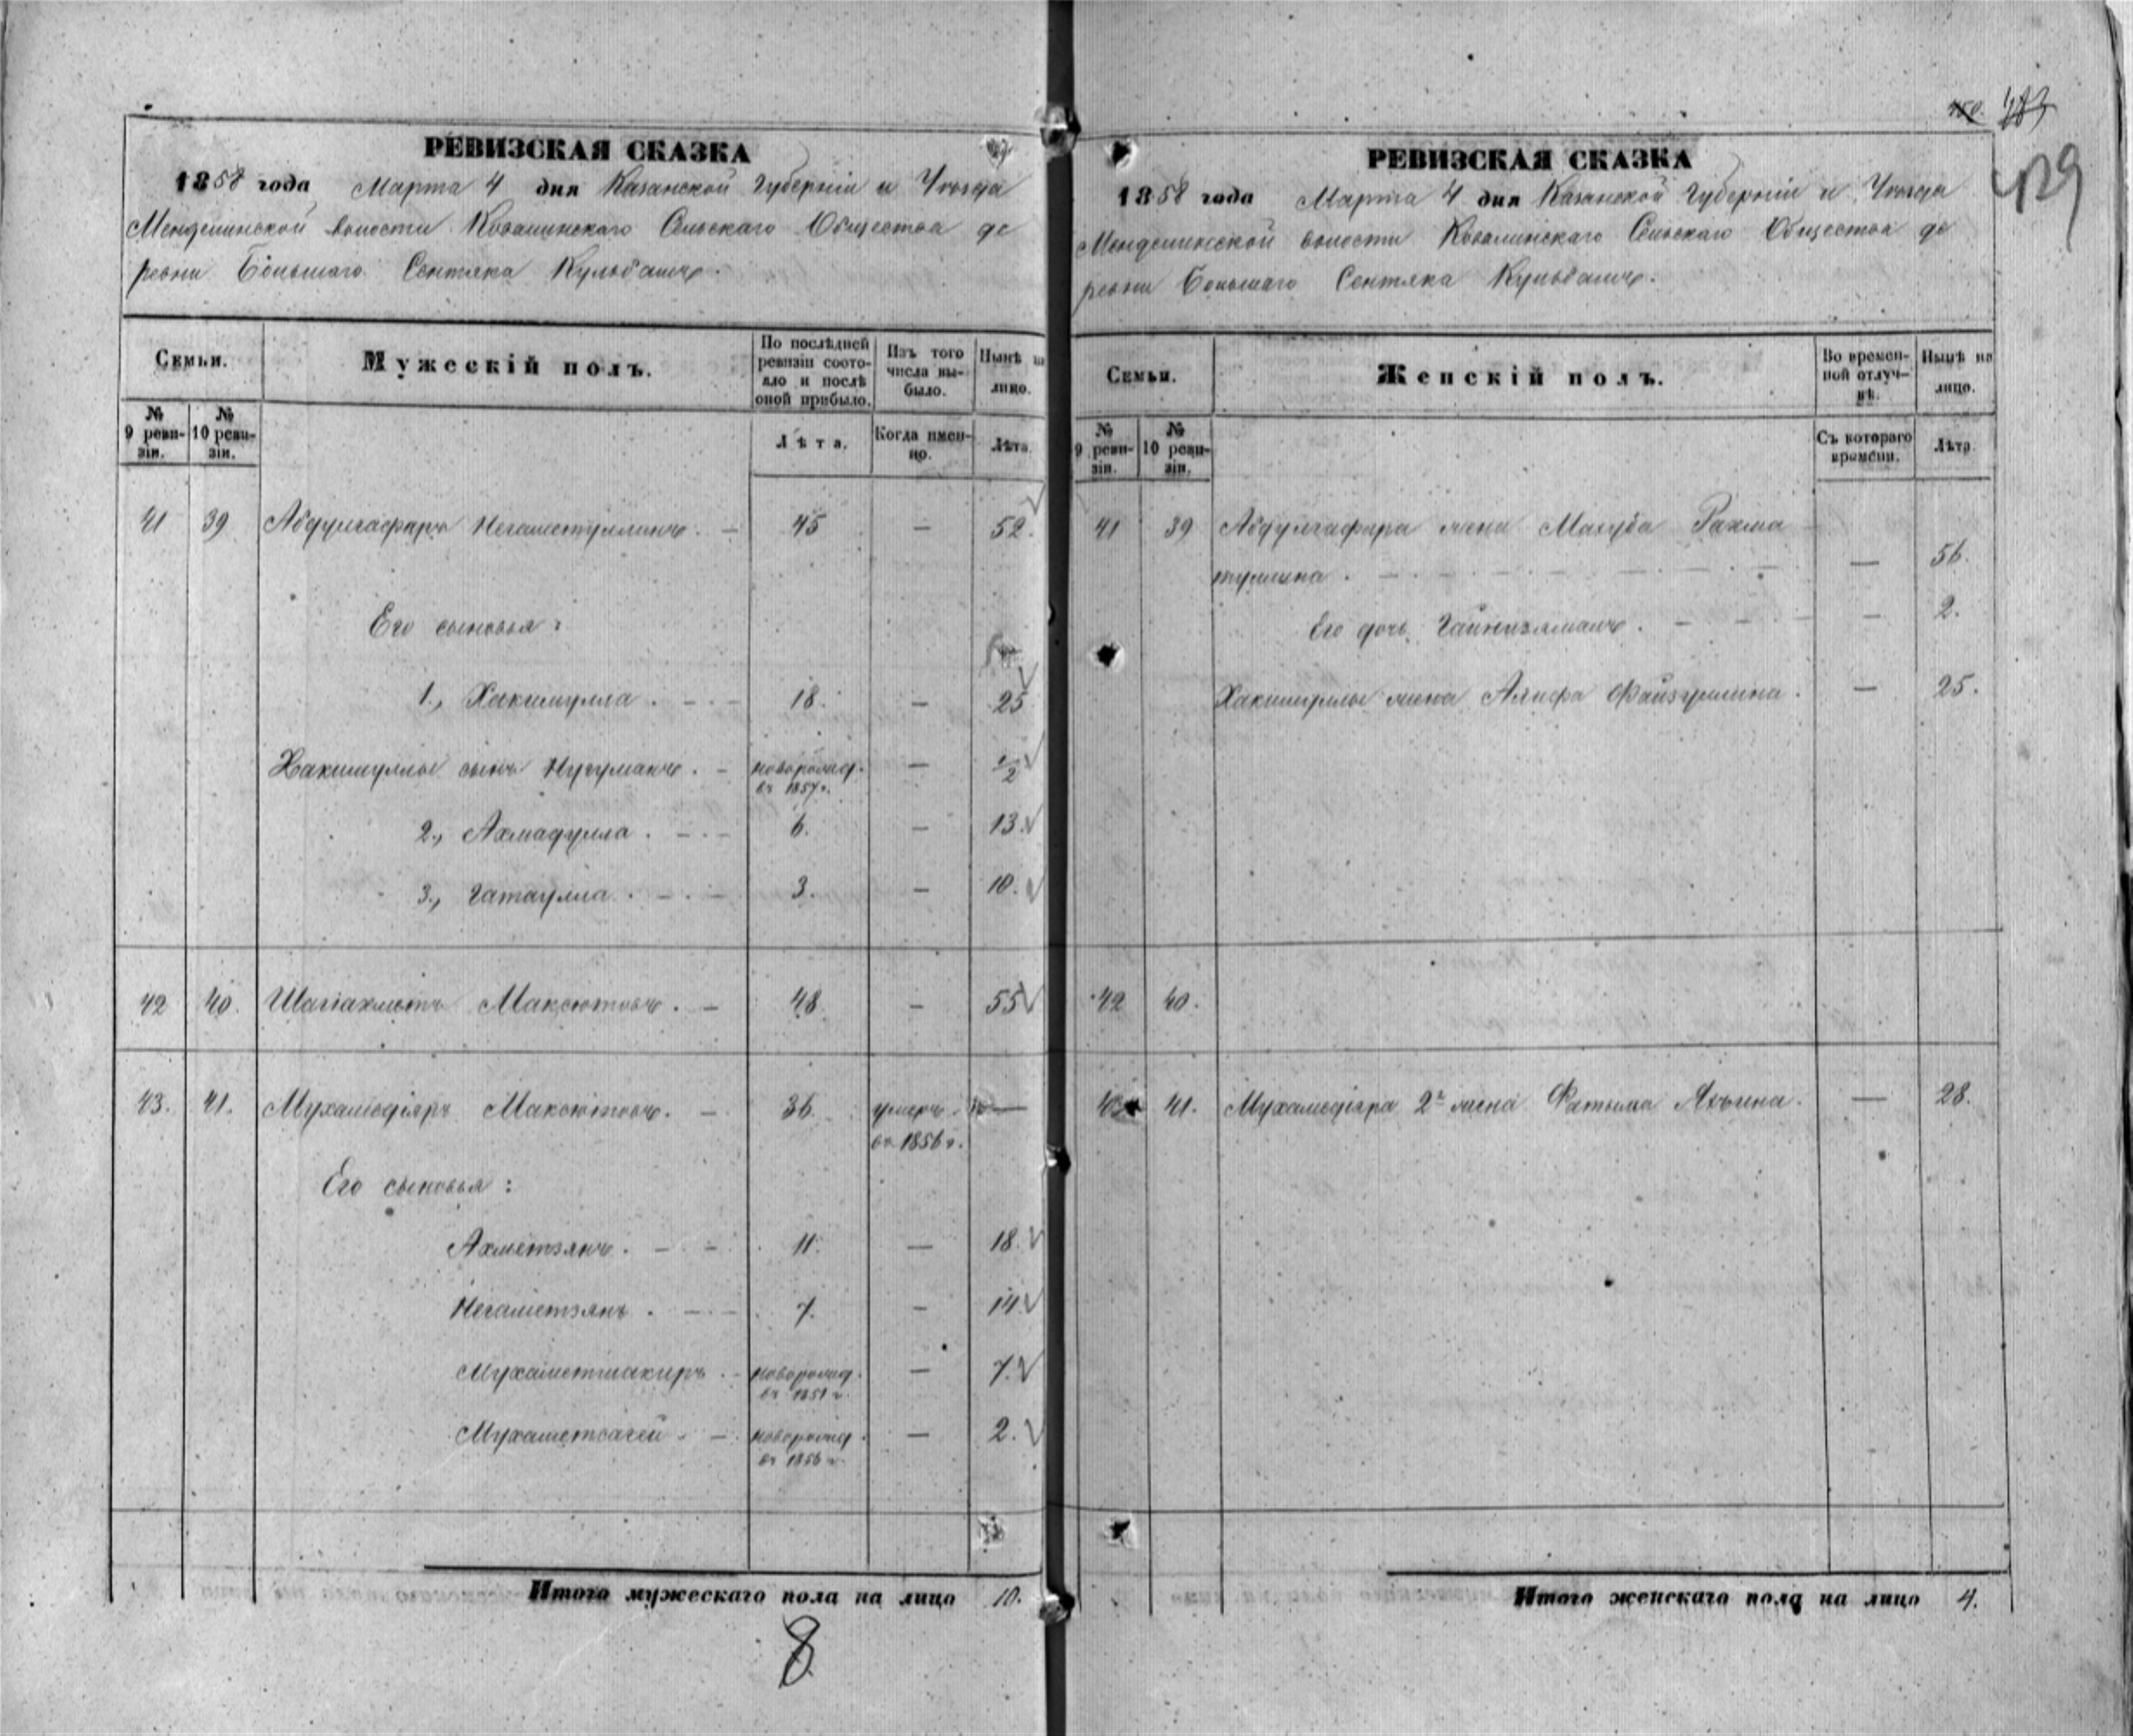 РЕВИЗСКАЯ СКАЗКА
1858 года Марта 4 дня Казанской Губерніи и Уѣзда
Менделинской волости Ковалинскаго Сельскаго Общества де
ревни Большаго Сентяка Кульбашъ.
Семьи.
Мужескій полъ.
По послѣдней ревизіи состояло и послѣ оной прибыло.
Изъ того числа выбыло.
Нынѣ на лицо.
№ 9 ревизіи.
№ 10 ревизіи.
Лѣта.
Когда именно.
Лѣта.
41 39 Абдулгафаръ Негаметуллинъ. — 45 — 52.
Его сыновья:
1., Хакимулла. — 18. — 25
Хакимуллы сынъ Нугуманъ. — новорожд. въ 1857 г. — 1/2
2., Ахмадулла. — 6. — 13.
3., Гатаулла. — 3. — 10.
42 40. Шагіахметъ Максютовъ. — 48. — 55
43. 41. Мухамедіяръ Максютовъ. — 36. умеръ въ 1856 г. —
Его сыновья:
Ахметзянъ. — 11. — 18.
Негаметзянъ. — 7. — 14.
Мухаметшакиръ. — новорожд. въ 1851 г. — 7.
Мухаметсагей. — новорожд. въ 1856 г. — 2.
Итого мужескаго пола на лицо 10.
8
429
РЕВИЗСКАЯ СКАЗКА
1858 года Марта 4 дня Казанской Губерніи и Уѣзда
Менделинской волости Ковалинскаго Сельскаго Общества де
ревни Большаго Сентяка Кульбашъ.
Семьи.
Женскій полъ.
Во временной отлучкѣ.
Нынѣ на лицо.
№ 9 ревизіи.
№ 10 ревизіи.
Съ котораго времени.
Лѣта.
41 39 Абдулгафара жена Махуба Рахма
тулина. — 56.
Его дочь Гайнизяманъ. — — 2.
Хакимуллы жена Алифа Файзуллина. — 25.
42 40.
41. Мухамедіяра 2ᵃ жена Фатыма Яхьина. — 28.
Итого женскаго пола на лицо 4.